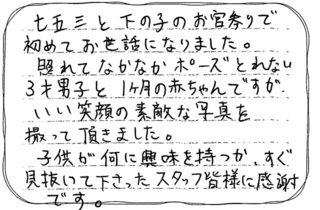 七五三と下の子のお宮参りで
初めてお世話になりました。
照れてなかなかポーズとれない
3才男子と1ヶ月の赤ちゃんですが
いい笑顔の素敵な写真を
撮って頂きました。
子供が何に興味を持つか、すぐ
見抜いて下さったスタッフ皆様に感謝
です。